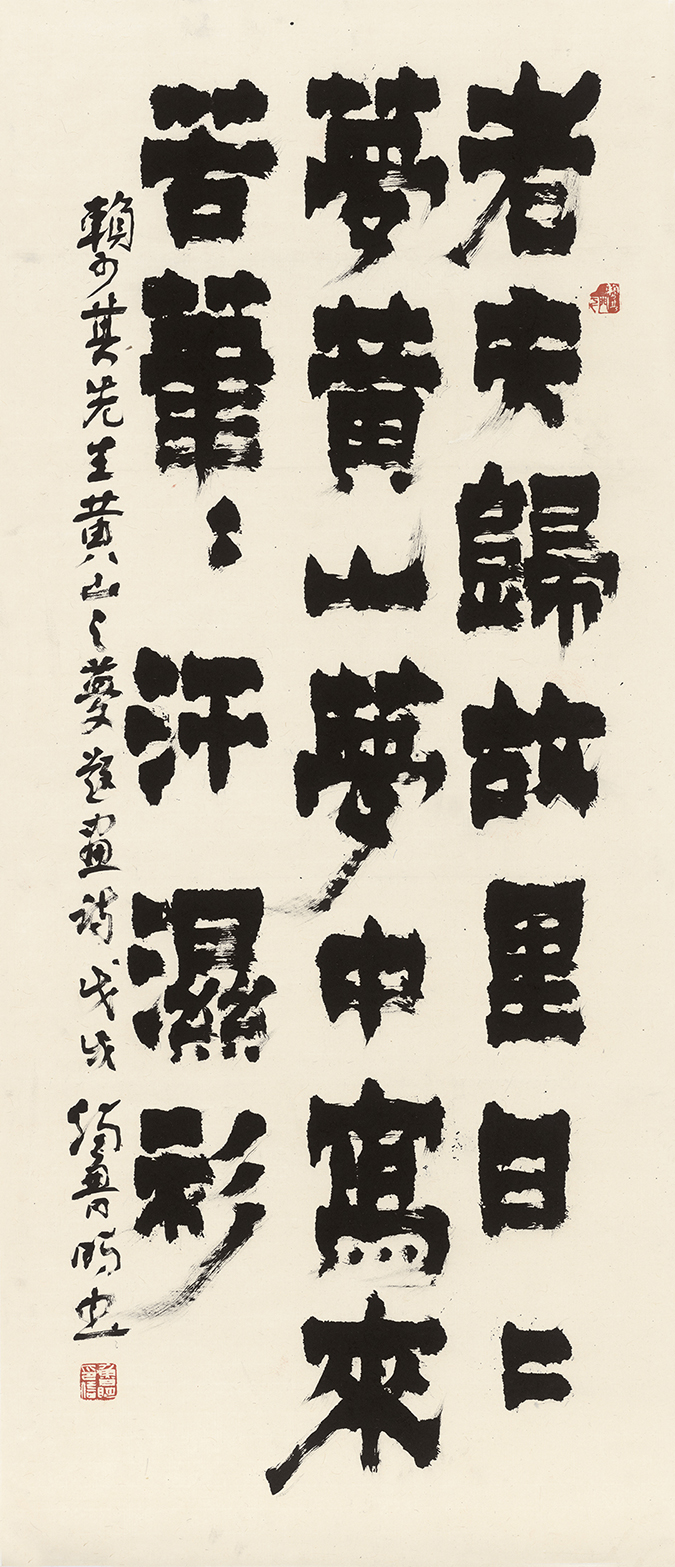 老夫歸故里日〻
夢黃山夢中寫來
苦筆〻汗濕彩
賴少其先生黃山之夢題畫詩戊戌魯明書